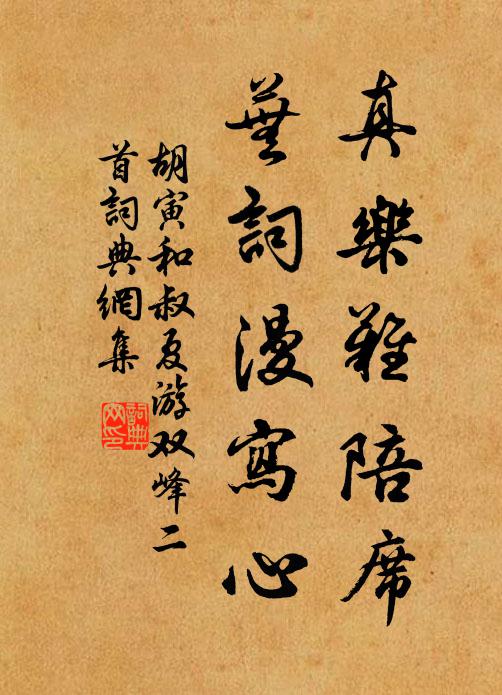 真樂難陪席
蕪詞漫寫心
胡寅和叔夏游双峰二
首詞典網集
詞典
网印